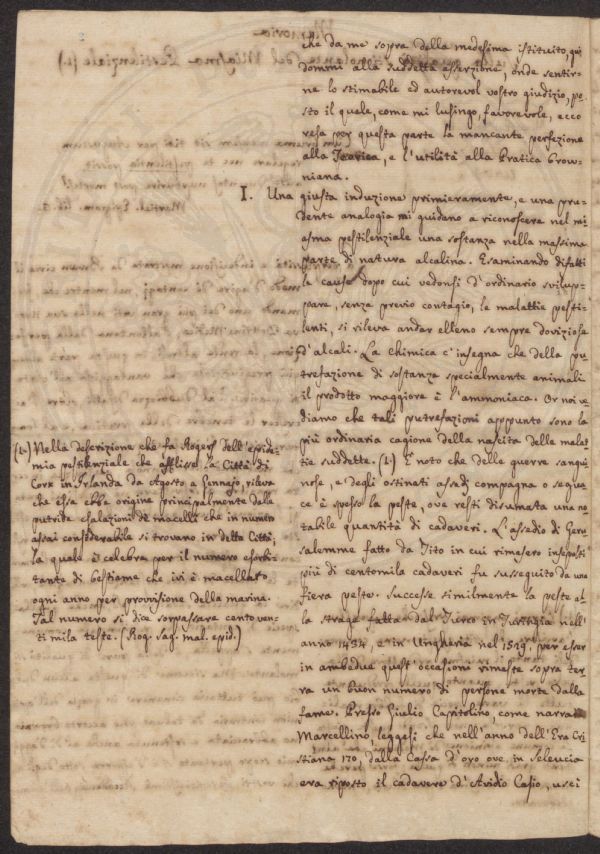 che da me sopra della medesima istituito, qui
domini alla suddetta asserzione, onde sentir-
ne lo stimabile ed autorevol vostro giudizio, po-
sto il quale, come mi lusingo, favorevole, ecco
resa per questa parte la mancante perfezione
alla Teorica, e l'utilità alla Pratica Brow-
niana.
I. Una giusta induzione primieramente, e una pru-
dente analogia mi guidano a riconoscere nel mi-
asma pestilenziale una sostanza nella massima
parte di natura alcalina. Esaminando difatti
le cause dopo cui vedonsi d'ordinario svilup-
pare, senza previo contagio, le malattie pesti-
lenti, si rileva andar elleno sempre doviziose
d'alcali. La Chimica c'insegna che della pu-
trefazione di sostanza specialmente animali
il prodotto maggiore è l'ammoniaca. Or noi ve-
diamo che tali putrefazioni appunto sono la
più ordinaria cagione della nascita delle malat-
tie suddette. (1.) È noto che delle guerre sangui-
nose, e degli ostinati assedj compagna o segua-
ce è spesso la peste, ove resti disumata una no-
tabile quantità di cadaveri. L'assedio di Geru-
salemme fatto da Tito in cui rimasero insepolti
più di centomila cadaveri fu susseguito da una
fiera peste. Successe similmente la peste al-
la strage fatta dal Turco in Turchia nell'
anno 1434, e in Ungheria nel 1529, per esser
in ambedue quest'occasioni rimaste sopra ter-
ra un buon numero di persone morte dalla
fame. Presso Giulio Capitolino, come narra
Marcellino, leggesi che nell'anno dell'Era Cri-
stiana 170, dalla Cassa d'oro ove in Seleucia
era riposto il cadavere d'Avidio Casio, uscì
(1.) Nella descrizione che fa Rogers dell'epide-
mia pestilenziale che afflisse la Città di
Cork in Irlanda da Agosto a Gennajo, rileva
che essa ebbe origine principalmente dalle
putride esalazioni de' macelli che in numero
assai considerabile si trovano in detta Città;
la quale è celebre per il numero esorbi-
tante di bestiame che ivi è macellato
ogni anno per provvisione della marina.
Tal numero si dice sorpassare cento ven-
ti mila teste. (Rog. Sag. mal. epid.)